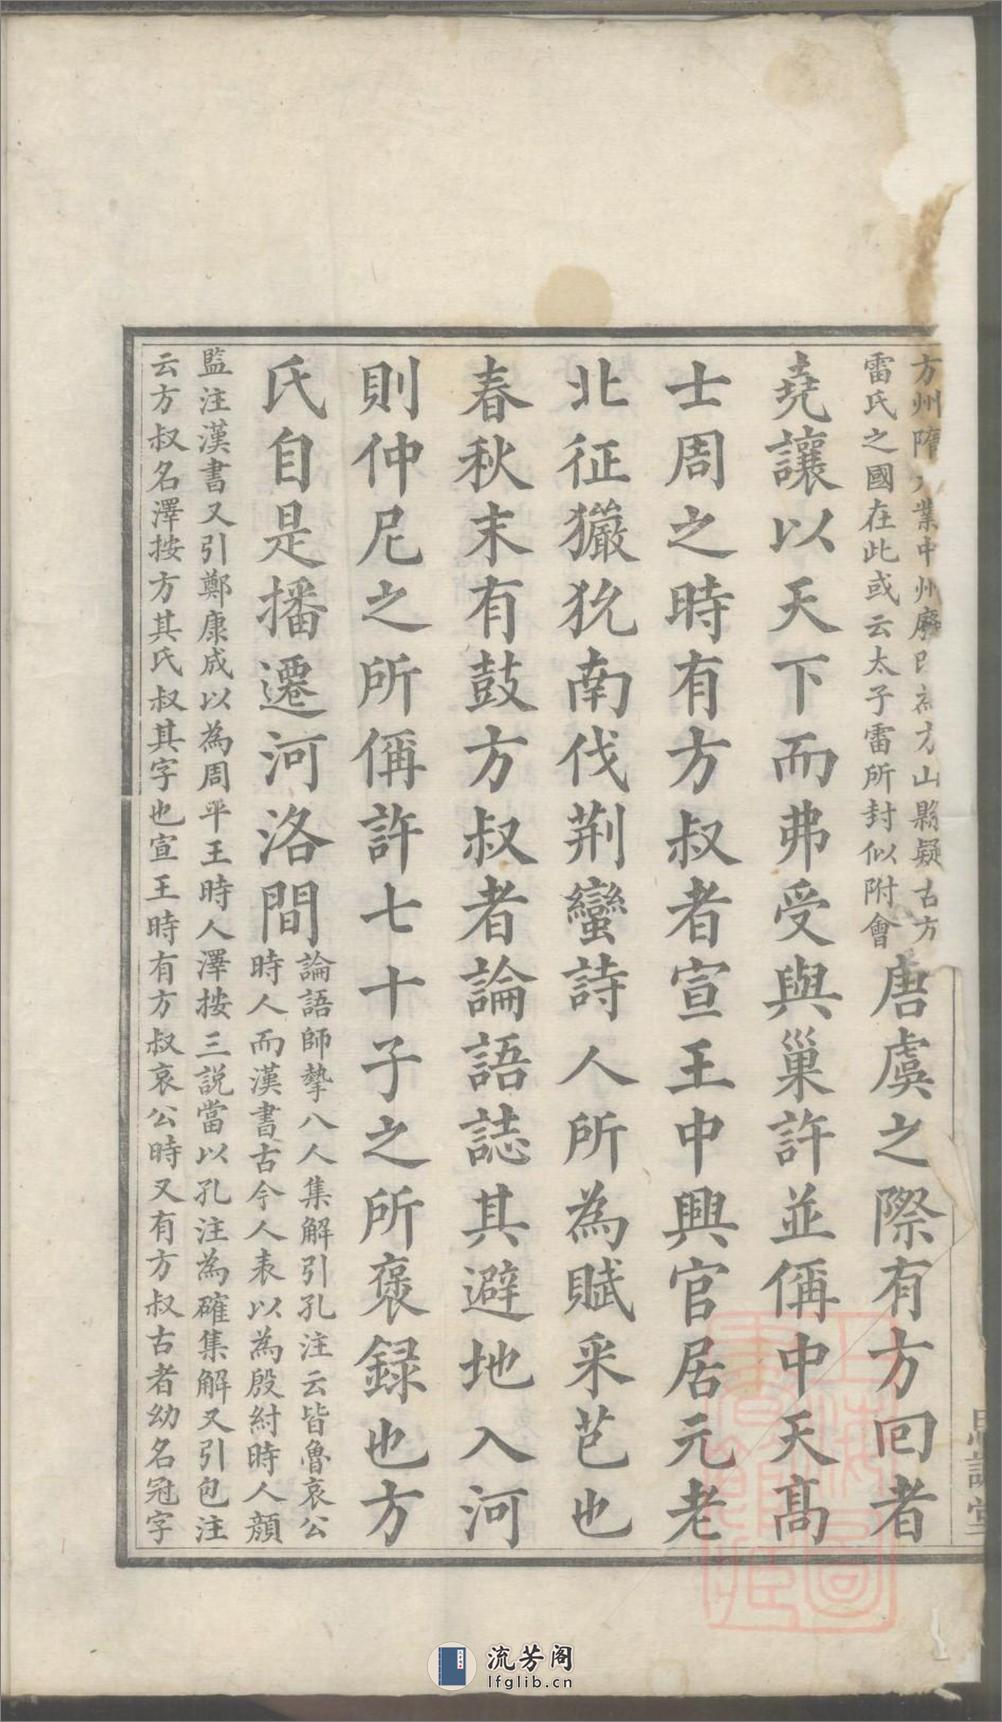 方州隋大業中州廢
山縣疑古方
雷氏之國在此或云太子雷所封似附會
唐虞之際有方回者
堯讓以天下而弗受與巢許並偁中天高
士周之時有方叔者宣王中興官居元老
北征玁狁南伐荆蠻詩人所為賦采芑也
春秋末有鼓方叔者論語誌其避地入河
則仲尼之所偁許七十子之所褒録也方
氏自是播遷河洛間
論語師摯八人集解引孔注云皆魯哀公
時人而漢書古今人表以為殷紂時人顏
監注漢書又引鄭康成以為周平王時人澤按三説當以孔注為確集解又引包注
云方叔名澤按方其氏叔其字也宣王時有方叔哀公時又有方叔古者幼名冠字
流芳阁
lfglib.cn